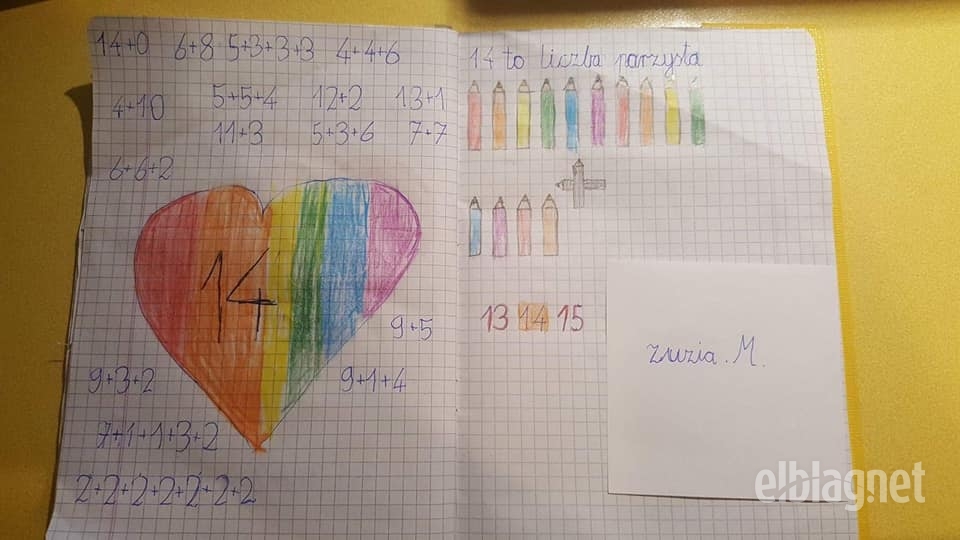 14+0 6+8 5+3+3+3 4+4+6
4+10 5+5+4 12+2 13+1
11+3 5+3+6 7+7
6+6+2
14
9+5
9+3+2 9+1+4
7+1+1+3+2
2+2+2+2+2+2+2
14 to liczba parzysta
13 14 15
Zuzia. M.
elblag.net